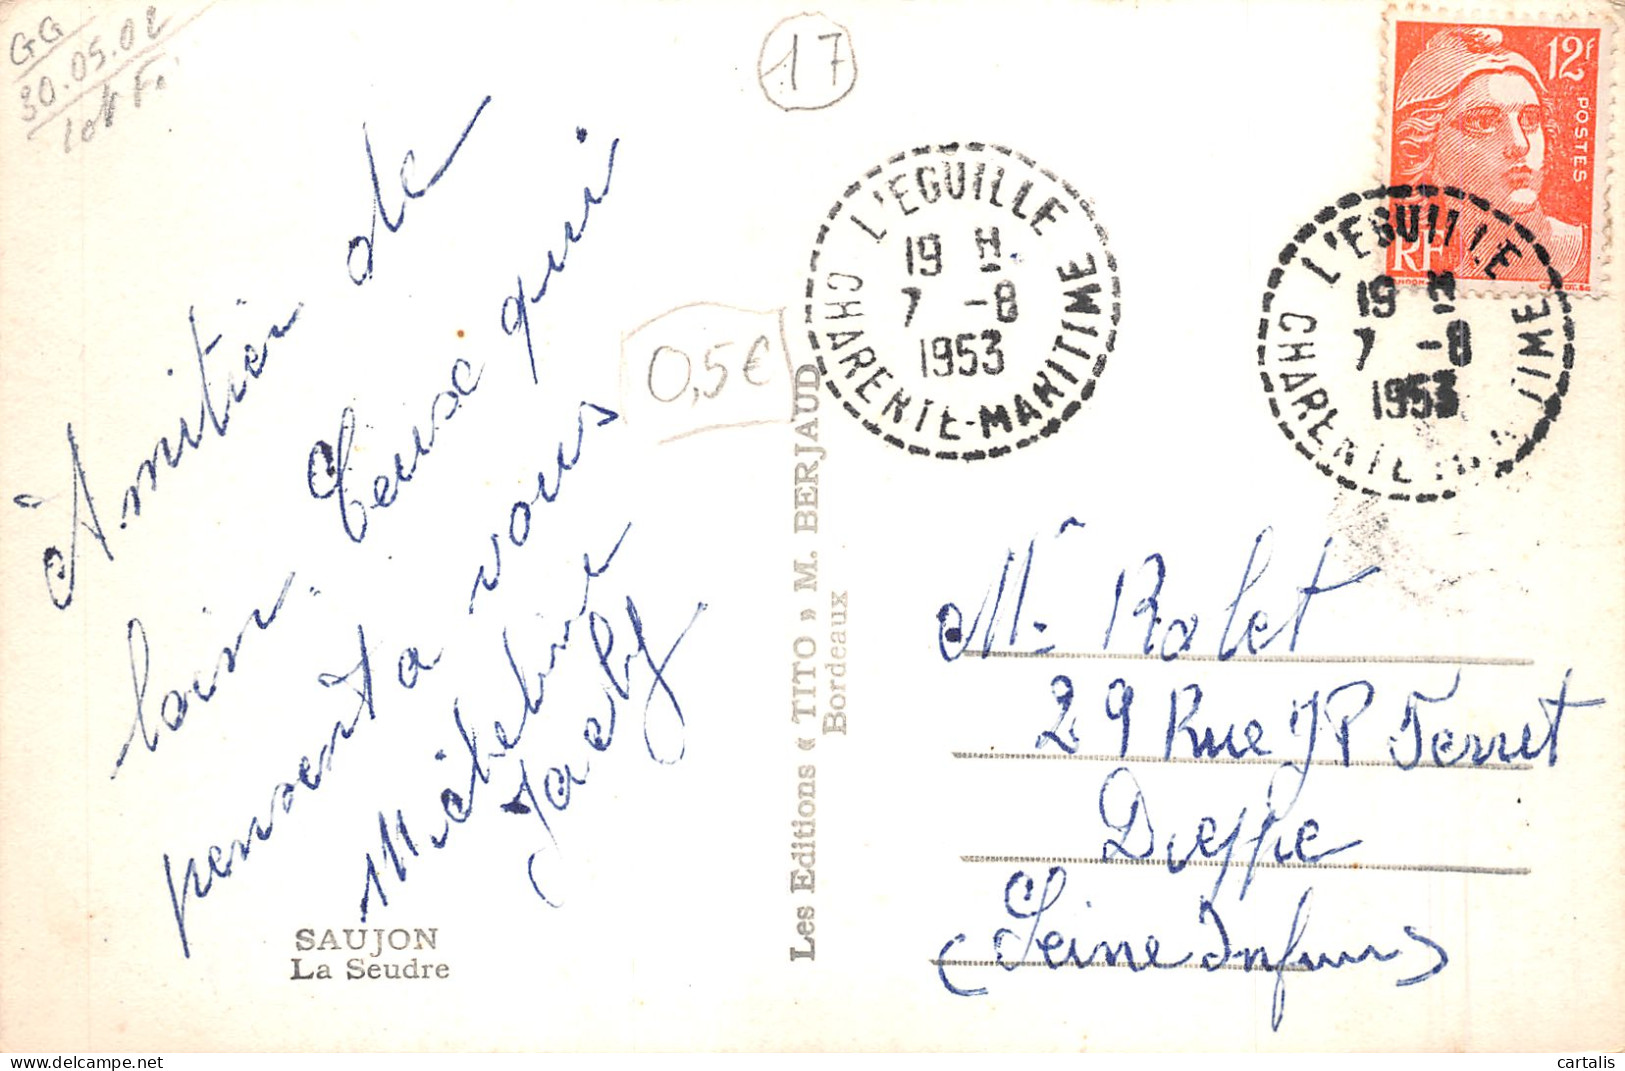 GG
30.05.02
17
Amitiés de
loin. Ceuse qui
pensent a vous
Micheline
Jacky
0,5€
SAUJON
La Seudre
Les Editions « TITO » M. BERJAUD
Bordeaux
L'EGUILLE
19 H.
7 -8
1953
CHARENTE-MARITIME
12f
POSTES
RF
L'EGUILLE
19 H
7 -8
1953
CHARENTE-MARITIME
Mr Rolet
29 Rue JP Ferret
Dieppe
(Seine Infur)
cartalis